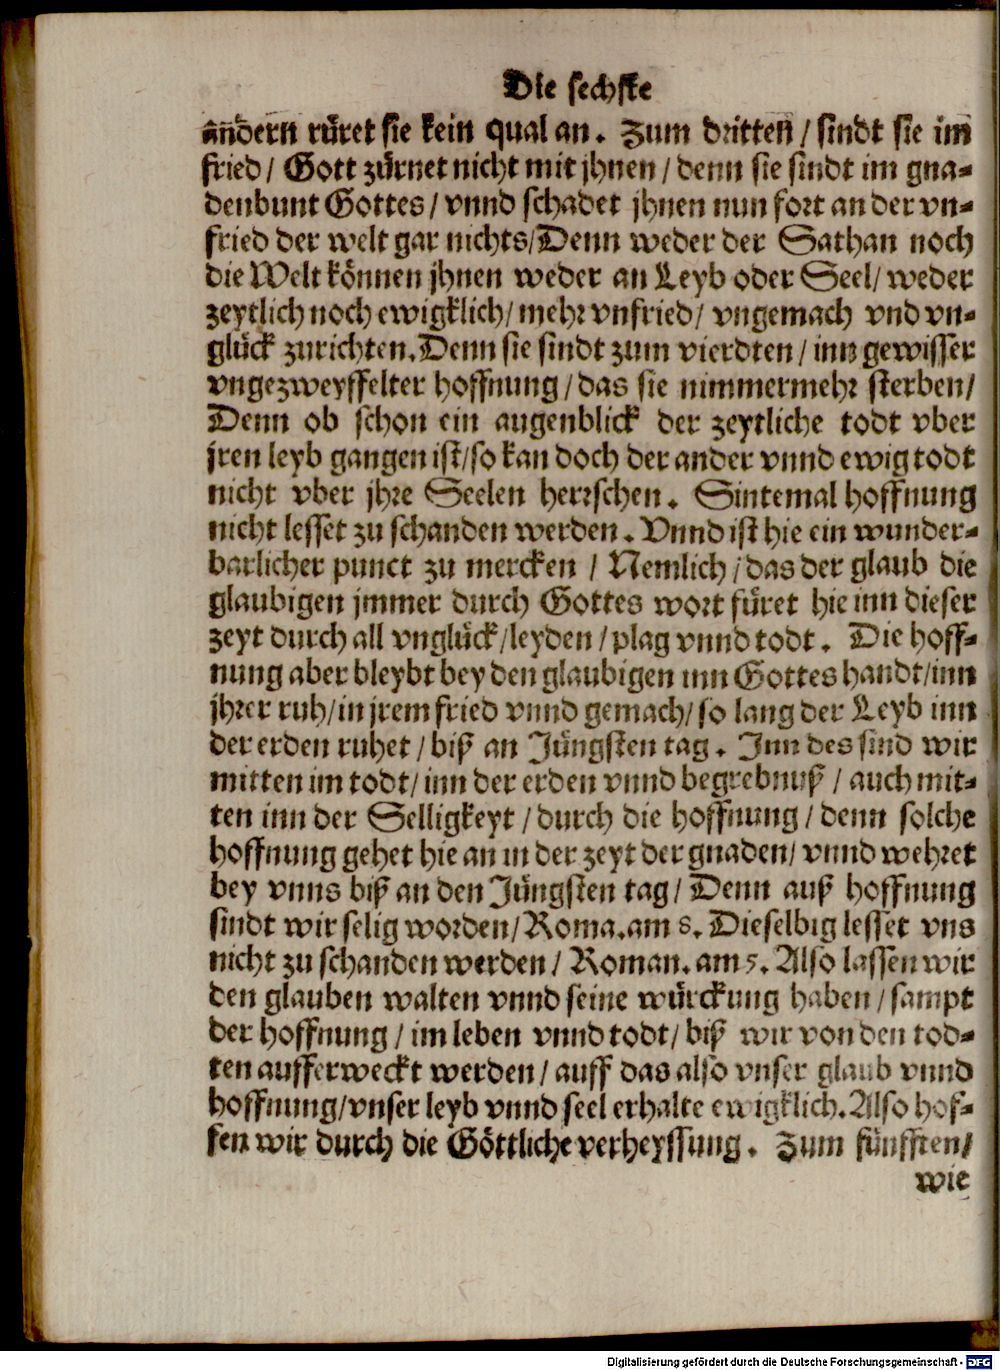 Die sechste
andern rüret sie kein qual an. Zum dritten / sindt sie im
fried / Gott zürnet nicht mit jhnen / denn sie sindt im gna-
denbunt Gottes / vnnd schadet jhnen nun fort an der vn-
fried der welt gar nichts / Denn weder der Sathan noch
die Welt können jhnen weder an Leyb oder Seel / weder
zeytlich noch ewigklich / mehr vnfried / vngemach vnd vn-
glück zurichten. Denn sie sindt zum vierdten / inn gewisser
vngezweyffelter hoffnung / das sie nimmermehr sterben /
Denn ob schon ein augenblick der zeytliche todt vber
jren leyb gangen ist / so kan doch der ander vnnd ewig todt
nicht vber jhre Seelen herrschen. Sintemal hoffnung
nicht lesset zu schanden werden. Vnnd ist hie ein wunder-
barlicher punct zu mercken / Nemlich / das der glaub die
glaubigen jmmer durch Gottes wort füret hie inn dieser
zeyt durch all vnglück / leyden / plag vnnd todt. Die hoff-
nung aber bleybt bey den glaubigen inn Gottes handt / inn
jhrer ruh / in jrem fried vnnd gemach / so lang der Leyb inn
der erden ruhet / biß an Jüngsten tag. Inn des sind wir
mitten im todt / inn der erden vnnd begrebnuß / auch mit-
ten inn der Selligkeyt / durch die hoffnung / denn solche
hoffnung gehet hie an in der zeyt der gnaden / vnnd wehret
bey vnns biß an den Jüngsten tag / Denn auß hoffnung
sindt wir selig worden / Roma. am 8. Dieselbig lesset vns
nicht zu schanden werden / Roman. am 5. Also lassen wir
den glauben walten vnnd seine würckung haben / sampt
der hoffnung / im leben vnnd todt / biß wir von den tod-
ten aufferweckt werden / auff das also vnser glaub vnnd
hoffnung / vnser leyb vnnd seel erhalte ewigklich. Also hof-
fen wir durch die Göttliche verheyssung. Zum fünfften /
wie
Digitalisierung gefördert durch die Deutsche Forschungsgemeinschaft - DFG